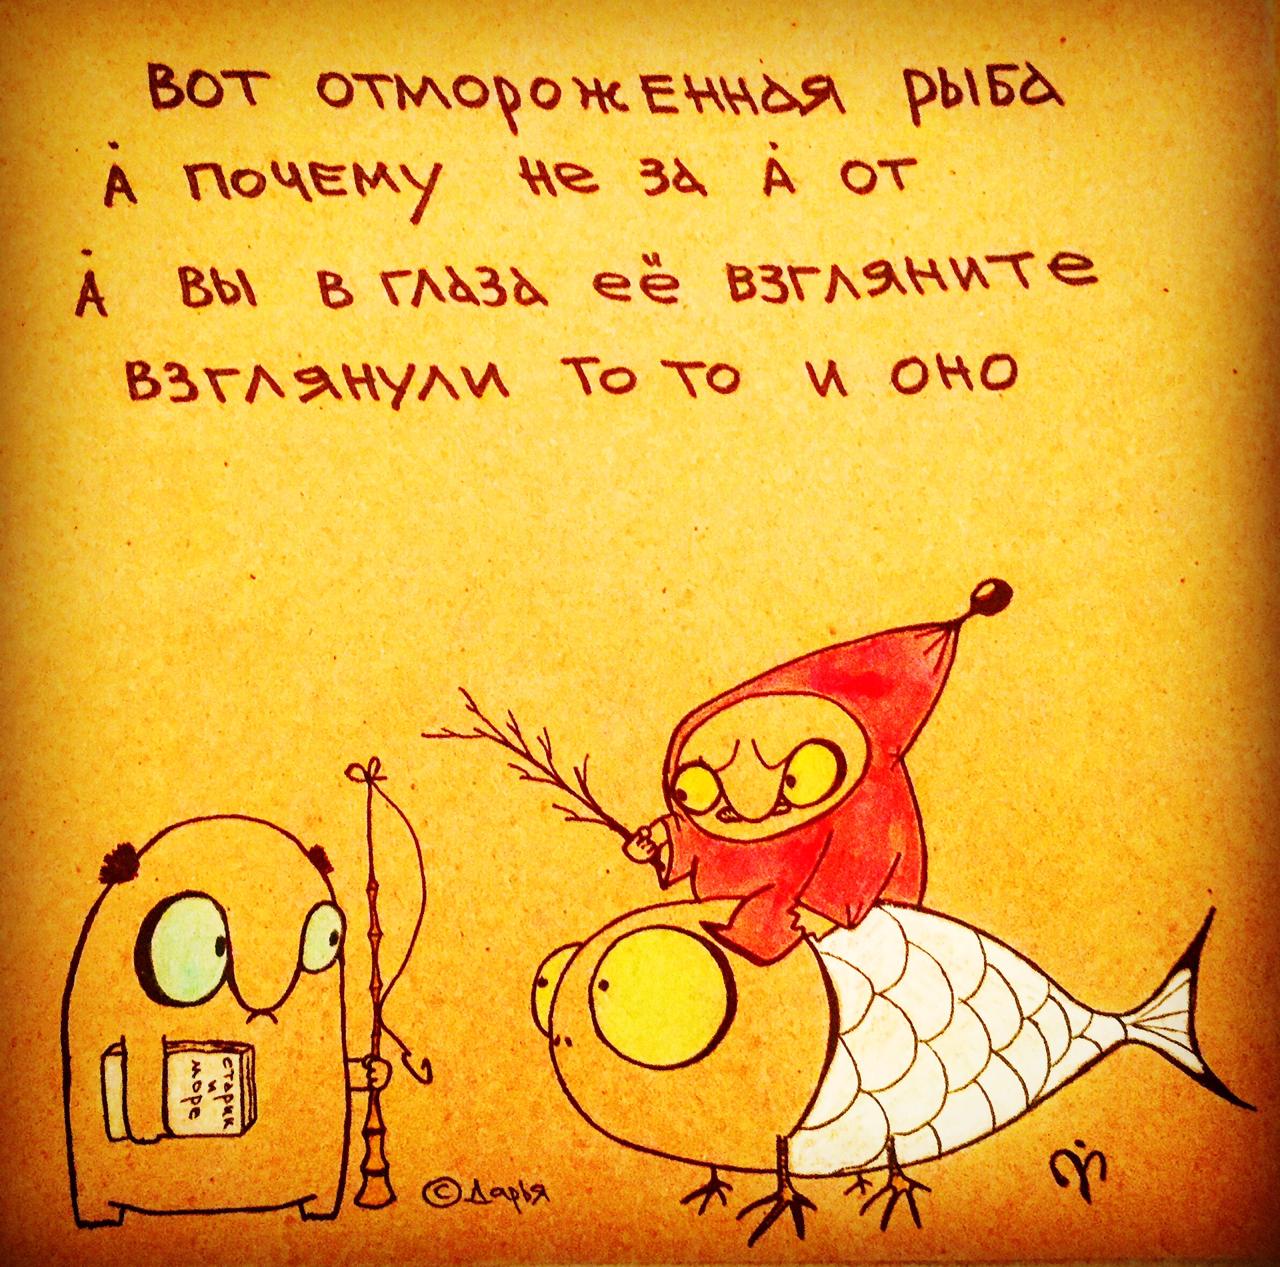 Вот отмороженная рыба
А почему не за А от
А вы в глаза её взгляните
взглянули то то и оно
старик
и
море
© Дарья